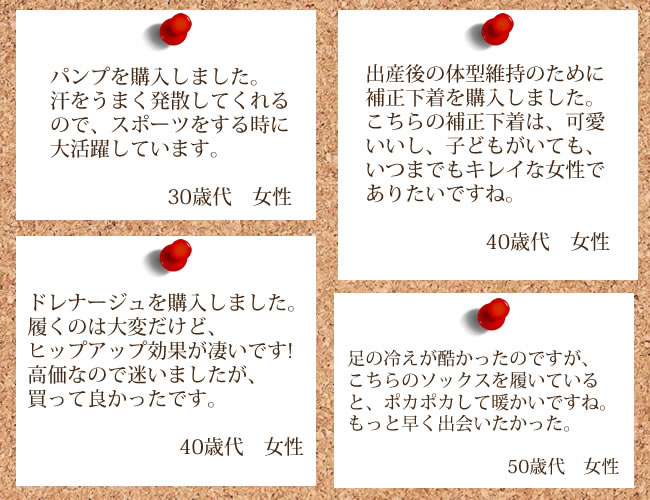 パンプを購入しました。
汗をうまく発散してくれる
ので、スポーツをする時に
大活躍しています。
30歳代　女性
出産後の体型維持のために
補正下着を購入しました。
こちらの補正下着は、可愛
いいし、子どもがいても、
いつまでもキレイな女性で
ありたいですね。
40歳代　女性
ドレナージュを購入しました。
履くのは大変だけど、
ヒップアップ効果が凄いです!
高価なので迷いましたが、
買って良かったです。
40歳代　女性
足の冷えが酷かったのですが、
こちらのソックスを履いている
と、ポカポカして暖かいですね。
もっと早く出会いたかった。
50歳代　女性